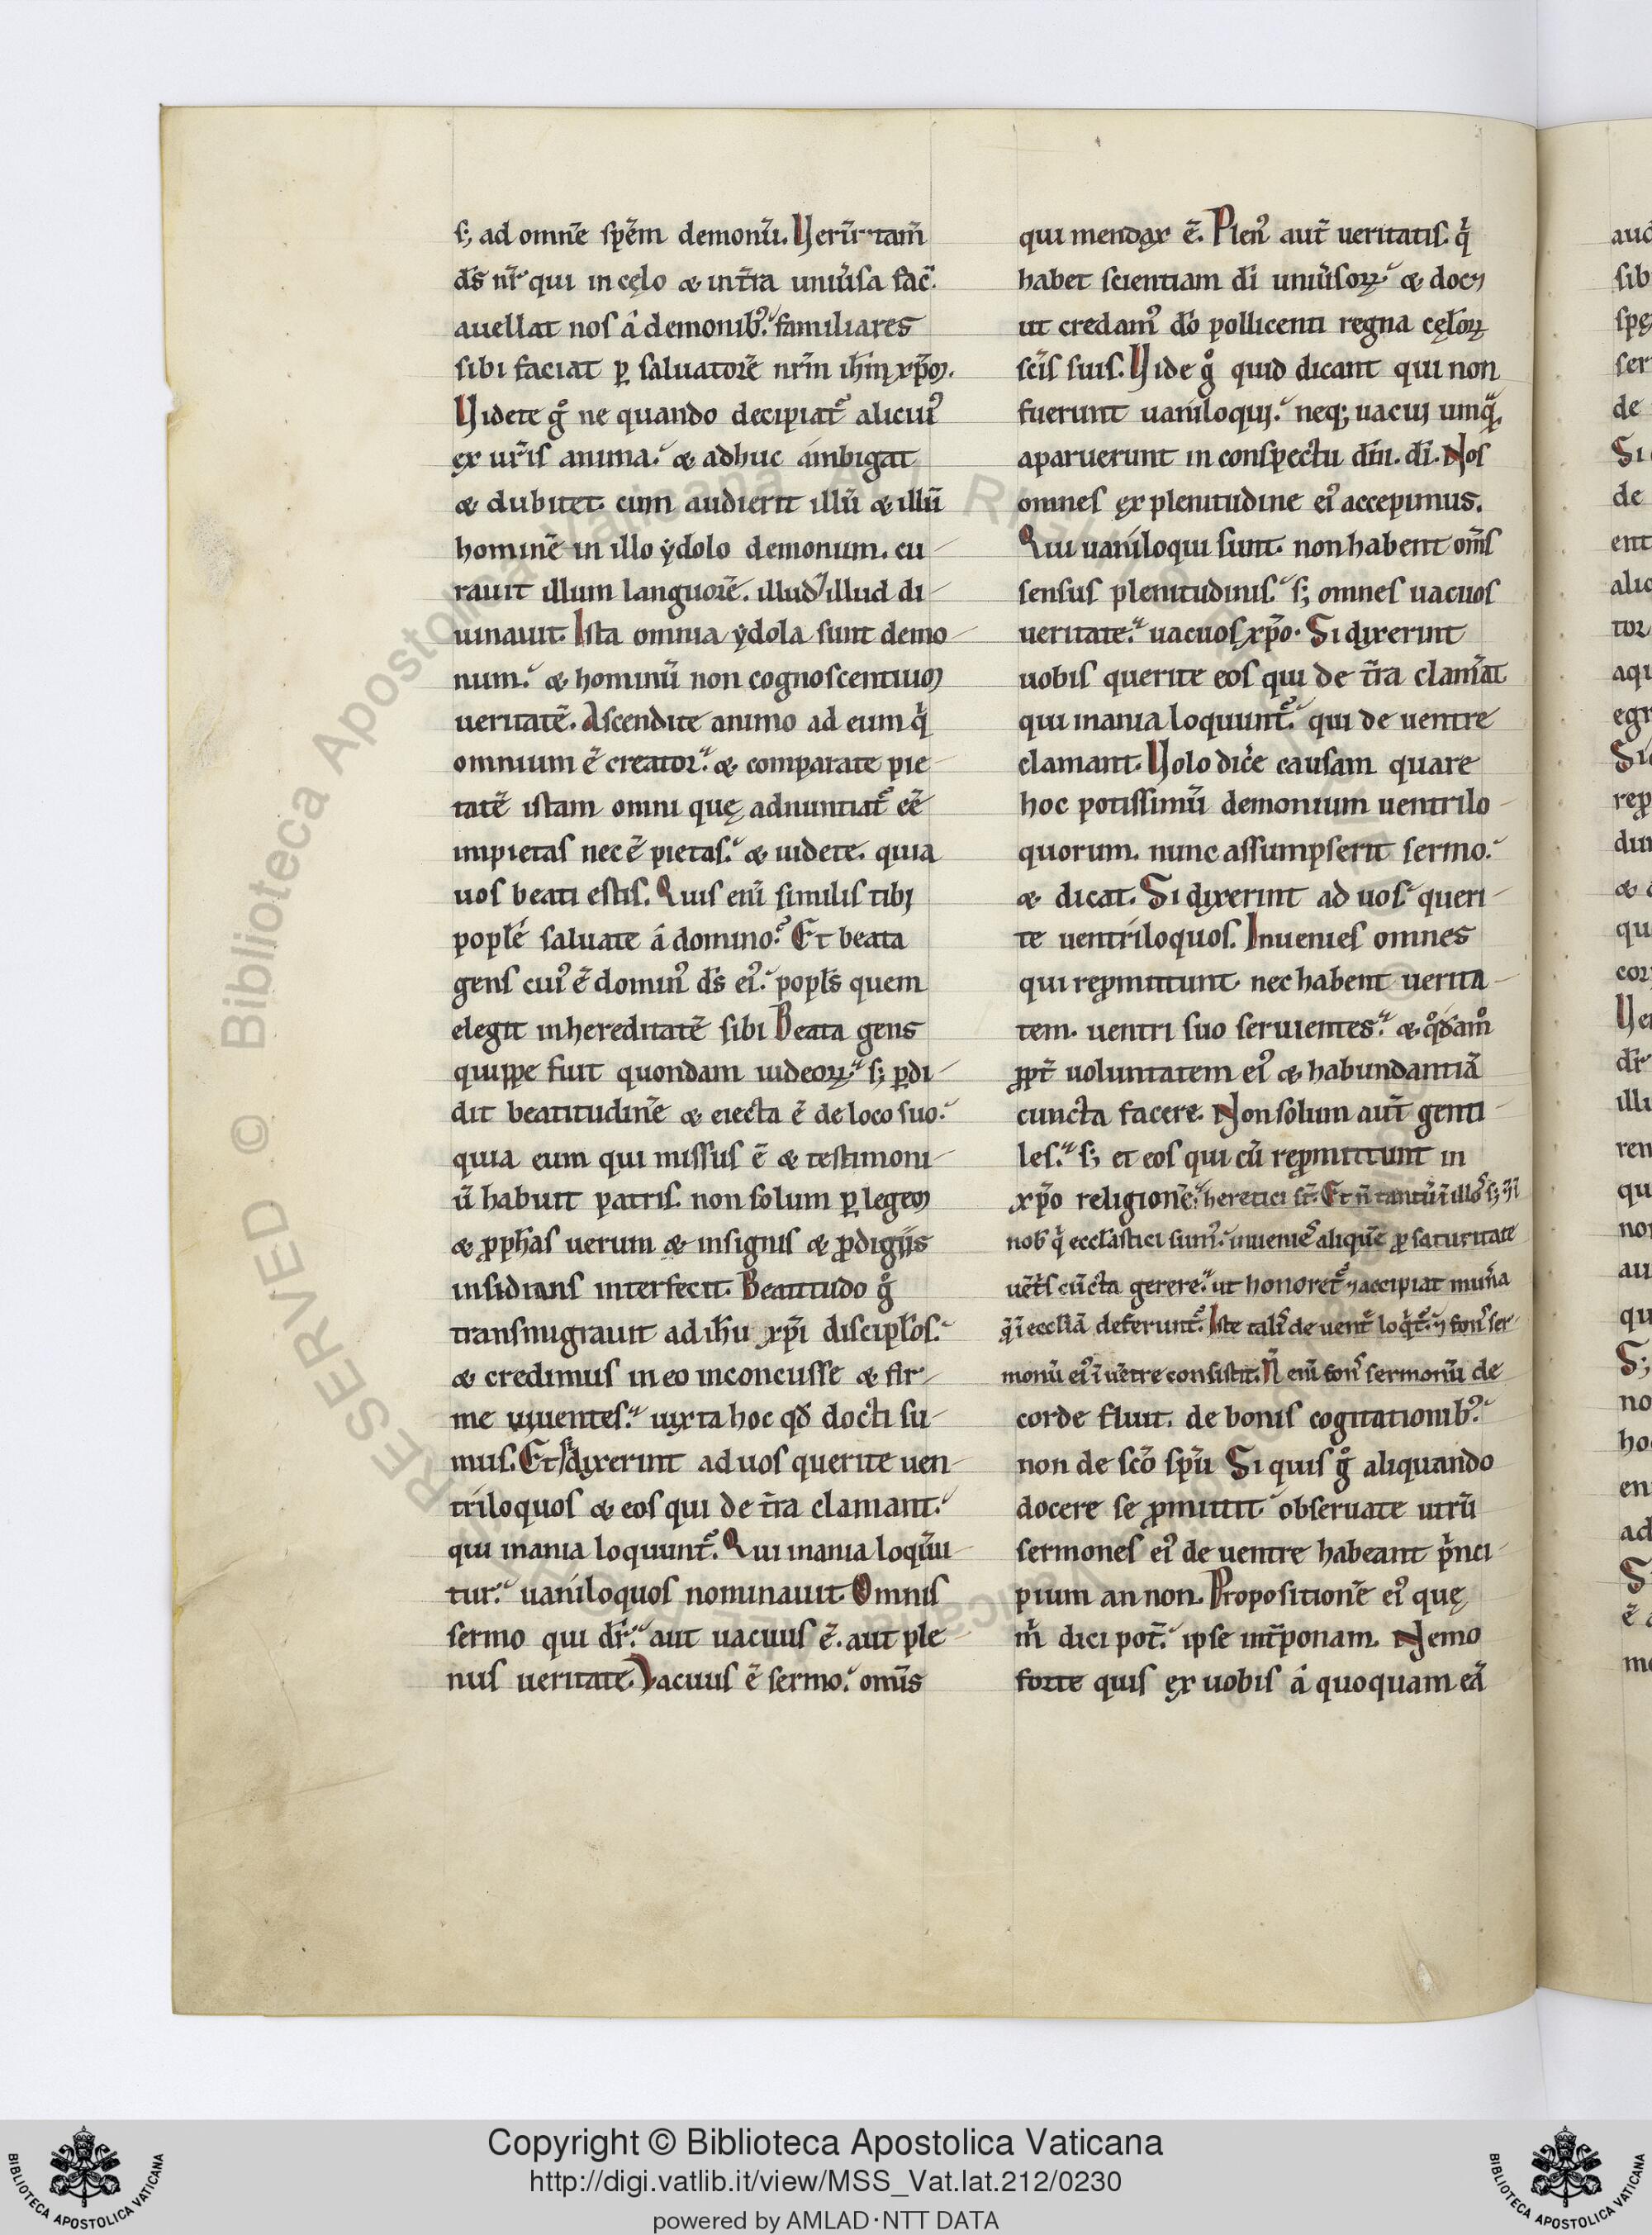 s; ad omnē spēm demonū. Verū tam̄
ds̄ nr̄ qui in cęlo & in t̄ra uniu̾sa fac̄.
auellat nos á demonib; familiares
sibi faciat ꝑ saluatorē nr̄m ih̄m xp̄m.
Videte gͦ ne quando decipiat᷑ alicui᷒
ex ur̄is anima. & adhuc ambigat
& dubitet. cum audierit illū & illū
hominē in illo ẏdolo demonum. cu
rauit illum languorē. illud illud di
uinauit. Ista omnia ẏdola sunt demo
num. & hominū non cognoscentium
ueritatē. Ascendite animo ad eum qͥ
omnium ē creator. & comparate pie
tatē istam omni quę adnuntiat᷑ eē
impietas nec ē pietas. & uidete. quia
uos beati estis. Quis eni̅ similis tibi
popl̄e saluate á domino? Et beata
gens cui᷒ ē domin᷒ ds̄ ei᷒. popl̄s quem
elegit in hereditatē sibi Beata gens
quippe fuit quondam iudeoꝝ. s; ꝑdi
dit beatitudinē & eiecta ē de loco suo.
quia eum qui missus ē & testimoni
ū habuit patris. non solum ꝑ legem
& ꝓph̄as uerum & insignis & ꝓdigiis
insidians interfecit. Beatitudo gͦ
transmigrauit ad ih̄u xp̄i discipl̄os.
& credimus in eo inconcusse & fir
me uiuentes. iuxta hoc qđ docti su
mus. Et si dixerint ad uos querite uen
triloquos & eos qui de t̄ra clamant.
qui inania loquunt᷑. Qui inania loqūu
tur. uaniloquos nominauit Omnis
sermo qui dr̄. aut uacuus ē. aut ple
nus ueritate. Vacuus ē sermo. omīs
qui mendax ē. Plen᷒ aut̄ ueritatis. qͥ
habet scientiam dī uniu̾soꝝ. & docꝫ
ut credam᷒ dō pollicenti regna cęloꝝ
sc̄is suis. Vide gͦ quid dicant qui non
fuerunt uaniloqui. neq; uacui umq̄.
aparuerunt in conspectu dn̄i. dī. Nos
omnes ex plenitudine ei᷒ accepimus.
Qui uaniloqui sunt. non habent om̄s
sensus plenitudinis. s; omnes uacuos
ueritate. uacuos xp̄o. Si dixerint
uobis querite eos qui de t̄ra clamāt
qui inania loquunt᷑. qui de uentre
clamant. Volo dic̾e causam quare
hoc potissimū demonium uentrilo
quorum. nunc assumpserit sermo.
& dicat. Si dixerint ad uos queri
te uentriloquos. Inuenies omnes
qui reꝓmittunt. nec habent uerita
tem. uentri suo seruientes. & qͦđamͦ
ꝓpt̄ uoluntatem ei᷒ & habundantiā
cuncta facere. Non solum aut̄ genti
les. s; et eos qui cū reꝓmittunt in
xp̄o religionē. heretici st̄. Et n̄ tantū ī illos s; ⁊ ī
nob̄ qͥ eccl̄astici sum᷒. inuenies aliquē ꝓ saturitate
uēt̄s cūcta gerere. ut honoret᷑ ⁊ accipiat mun̾a
q̄ ī eccl̄iā deferunt᷑. Iste talis de uent̄ loqͥt᷑. ⁊ fons ser
monū ei᷒ ī uētre consistit. N̄ eni̅ fons sermonū de
corde fluit. de bonis cogitationib;
non de sc̄o sp̄u Si quis gͦ aliquando
docere se ꝓmittit obseruate utrū
sermones ei᷒ de uentre habeant pͥnci
pium an non. Propositionē ei᷒ quę
mͥ dici pot̄. ipse int̄ponam. Nemo
forte quis ex uobis á quoquam eā
Copyright © Biblioteca Apostolica Vaticana
http://digi.vatlib.it/view/MSS_Vat.lat.212/0230
powered by AMLAD·NTT DATA